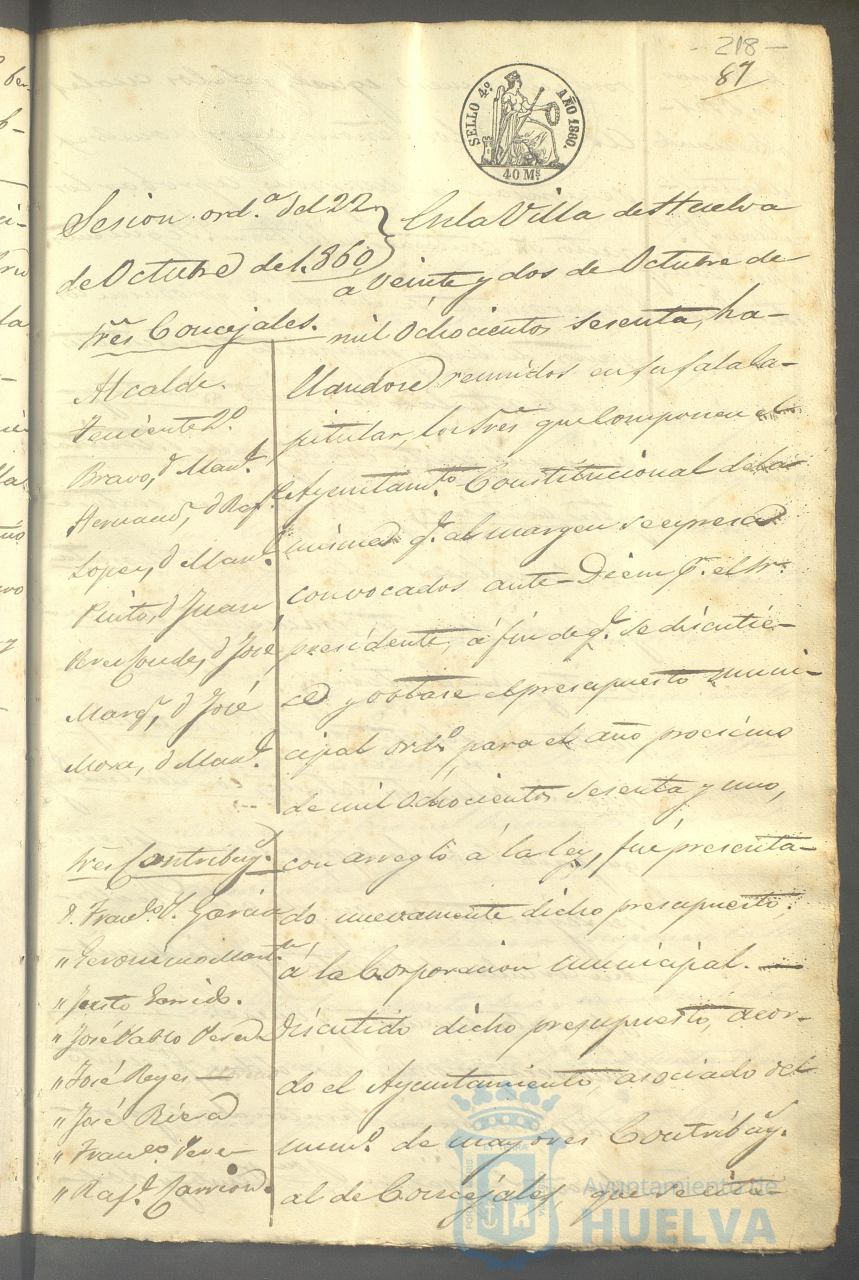 - 218 -
87
SELLO 4º AÑO 1860.
40 Mˢ
Sesion ord.ª del 22
de Octubre de 1.860
Sres Concejales.
Alcalde.
Teniente 2º
Bravo, d Man.l
Hernand.z, d Raf.l
Lopez, d Man.l
Pinto, d Juan
Perez Conde, d José
Marq.z, d José
Mora, d Man.l
Sres Contribuy.s
d. Fran.co V. Garcia
" Geronimo Mart.n
" Justo Garrido.
" José Pablo Perez
" José Reyes —
" José Riera
" Fran.co Perez
" Raf.l Carrion.
En la Villa de Huelva
a veinte y dos de Octubre de
mil ochocientos sesenta, ha-
llandose reunidos en su sala ca-
pitular, los Sres que componen el
Ayuntam.to Constitucional de la
misma q.e al margen se espresa
convocados ante-Diem p.r el Sr.
presidente, á fin de q.e se discutie-
se y votase el presupuesto muni-
cipal ord.o para el año procsimo
de mil ochocientos sesenta y uno,
con arreglo á la ley, fué presenta-
do nuevamente dicho presupuesto,
á la Corporacion municipal. —
Discutido dicho presupuesto, acor-
do el Ayuntamiento, asociado del
num.o de mayores Contribuy.s
al de Concejales, que se
Ayuntamiento de
HUELVA